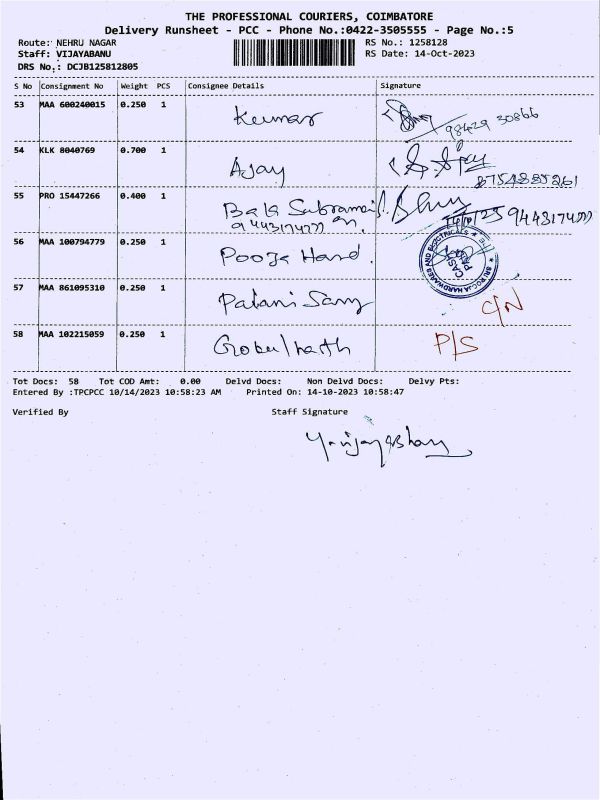 THE PROFESSIONAL COURIERS, COIMBATORE
Delivery Runsheet - PCC - Phone No.:0422-3505555 - Page No.:5
Route: NEHRU NAGAR RS No.: 1258128
Staff: VIJAYABANU RS Date: 14-Oct-2023
DRS No.: DCJB125812805
S No Consignment No Weight PCS Consignee Details Signature
53 MAA 600240015 0.250 1 Kumar 98429 30866
54 KLK 8040769 0.700 1 Ajay
55 PRO 15447266 0.400 1 Bala
56 MAA 100794779 0.250 1 Pooja Hard.
SRI POOJA HARDWARES AND ELECTRICALS
57 MAA 861095310 0.250 1 Palani Samy C/N
58 MAA 102215059 0.250 1 P/S
Tot Docs: 58 Tot COD Amt: 0.00 Delvd Docs: Non Delvd Docs: Delvy Pts:
Entered By :TPCPCC 10/14/2023 10:58:23 AM Printed On: 14-10-2023 10:58:47
Verified By Staff Signature